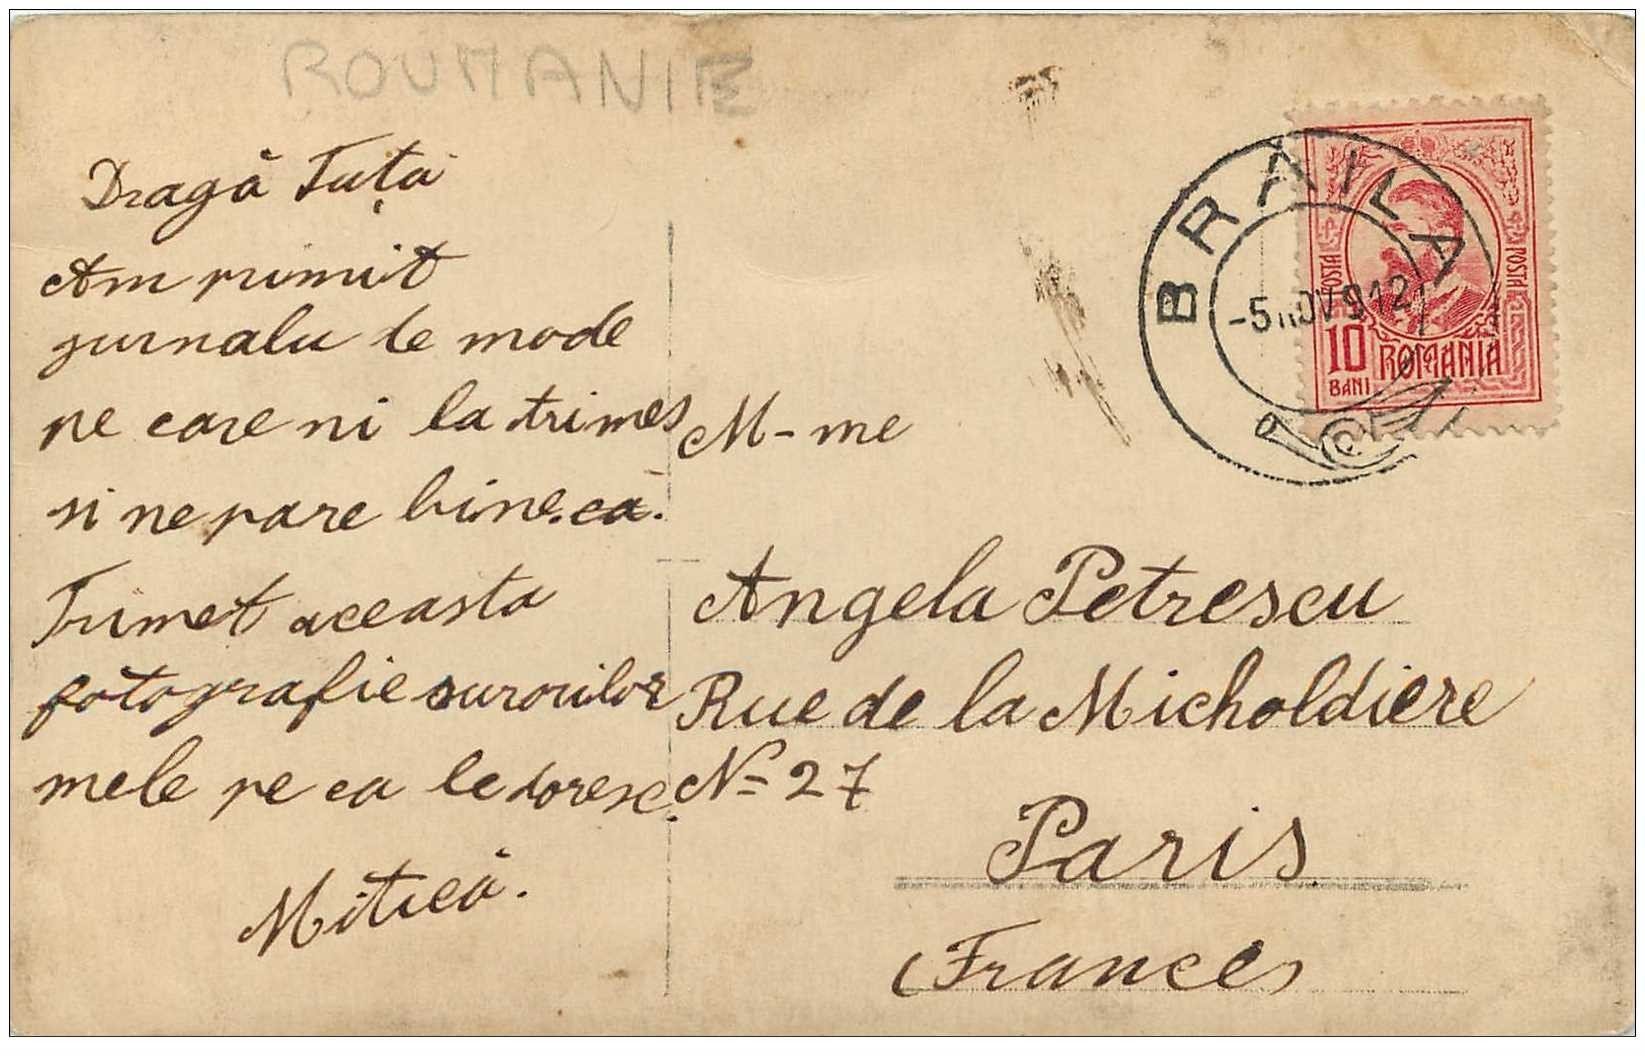 ROUMANIE
Dragă Tuța
Am primit
jurnalu de mode
pe care ni la trimes
si ne pare bine. că.
Trimet aceasta
fotografie surorilor
mele pe ca le doresc.
Mitică.
BRAILA
-5 NOV 912
POSTA
POSTA
10
BANI
ROMANIA
M-me
Angela Petrescu
Rue de la Micholdiere
No 27
Paris
France